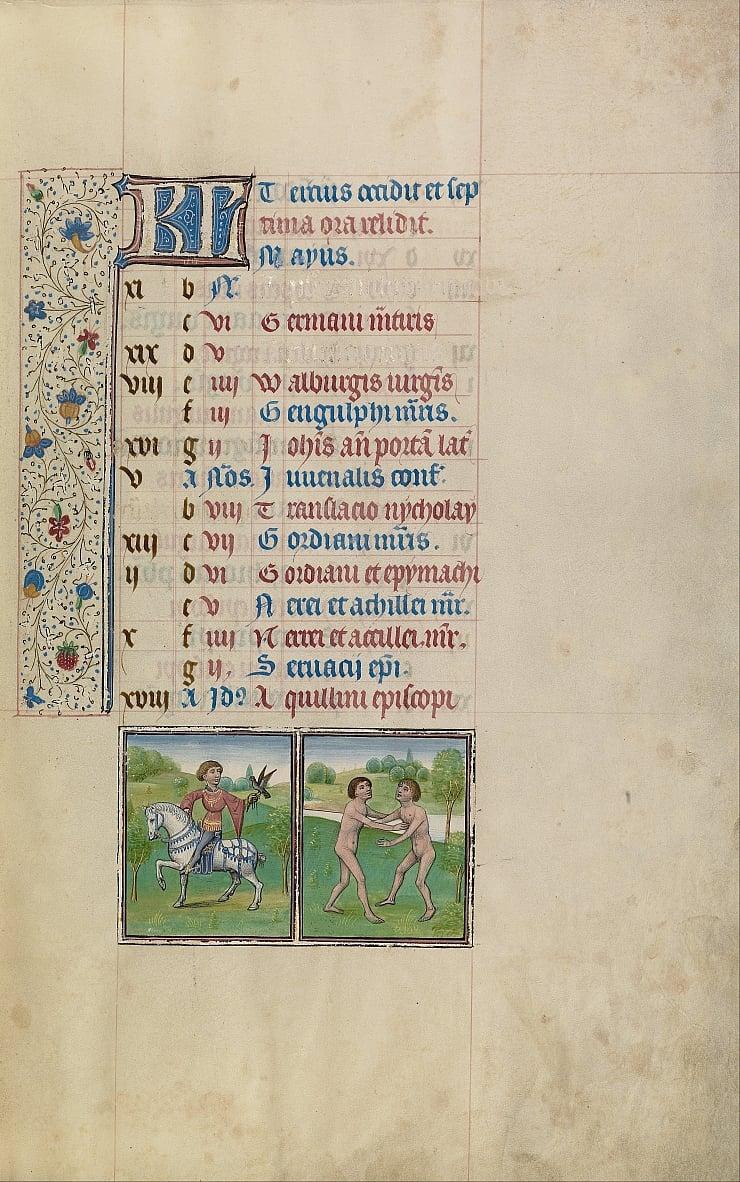 KL Tercius occidit et sep
tima ora relidit.
Mayus.
xi b N.
c vi Germani mr̃tiris
xix d v
viii e iiii Walburgis uirgis
f iii Gengulphi mr̃is.
xvi g ii Johis̃ an̄ portā lat̄
v A Nõs Juuenalis conf.
b viii Translacio nycholay
xiii c vii Gordiani mr̃is.
ii d vi Gordiani et epymachi
e v Nerei et achillei mr̃.
x f iiii Nerei et accillei. mr̃.
g ii, Seruacij ep̄i.
xviii A Id? Aquillini episcopi